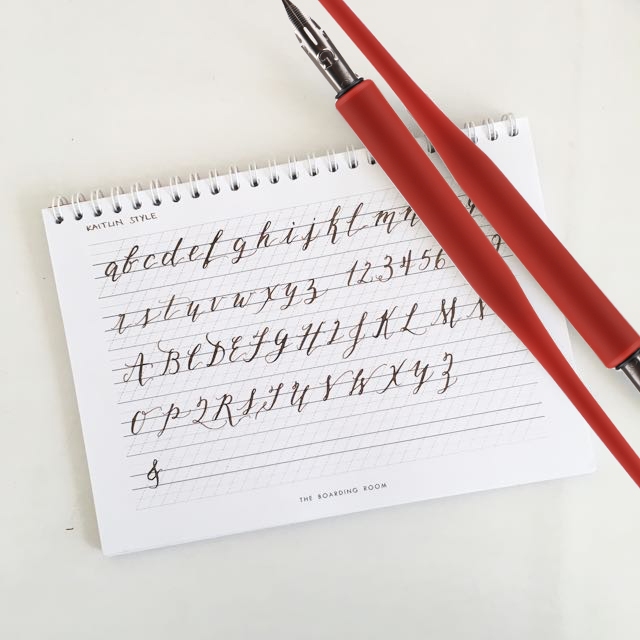 KAITLIN STYLE
a b c d e f g h i j k l m n
r s t u v w x y z 1 2 3 4 5 6
A B C D E F G H I J K L M N
O P Q R S T U V W X Y Z
&
THE BOARDING ROOM